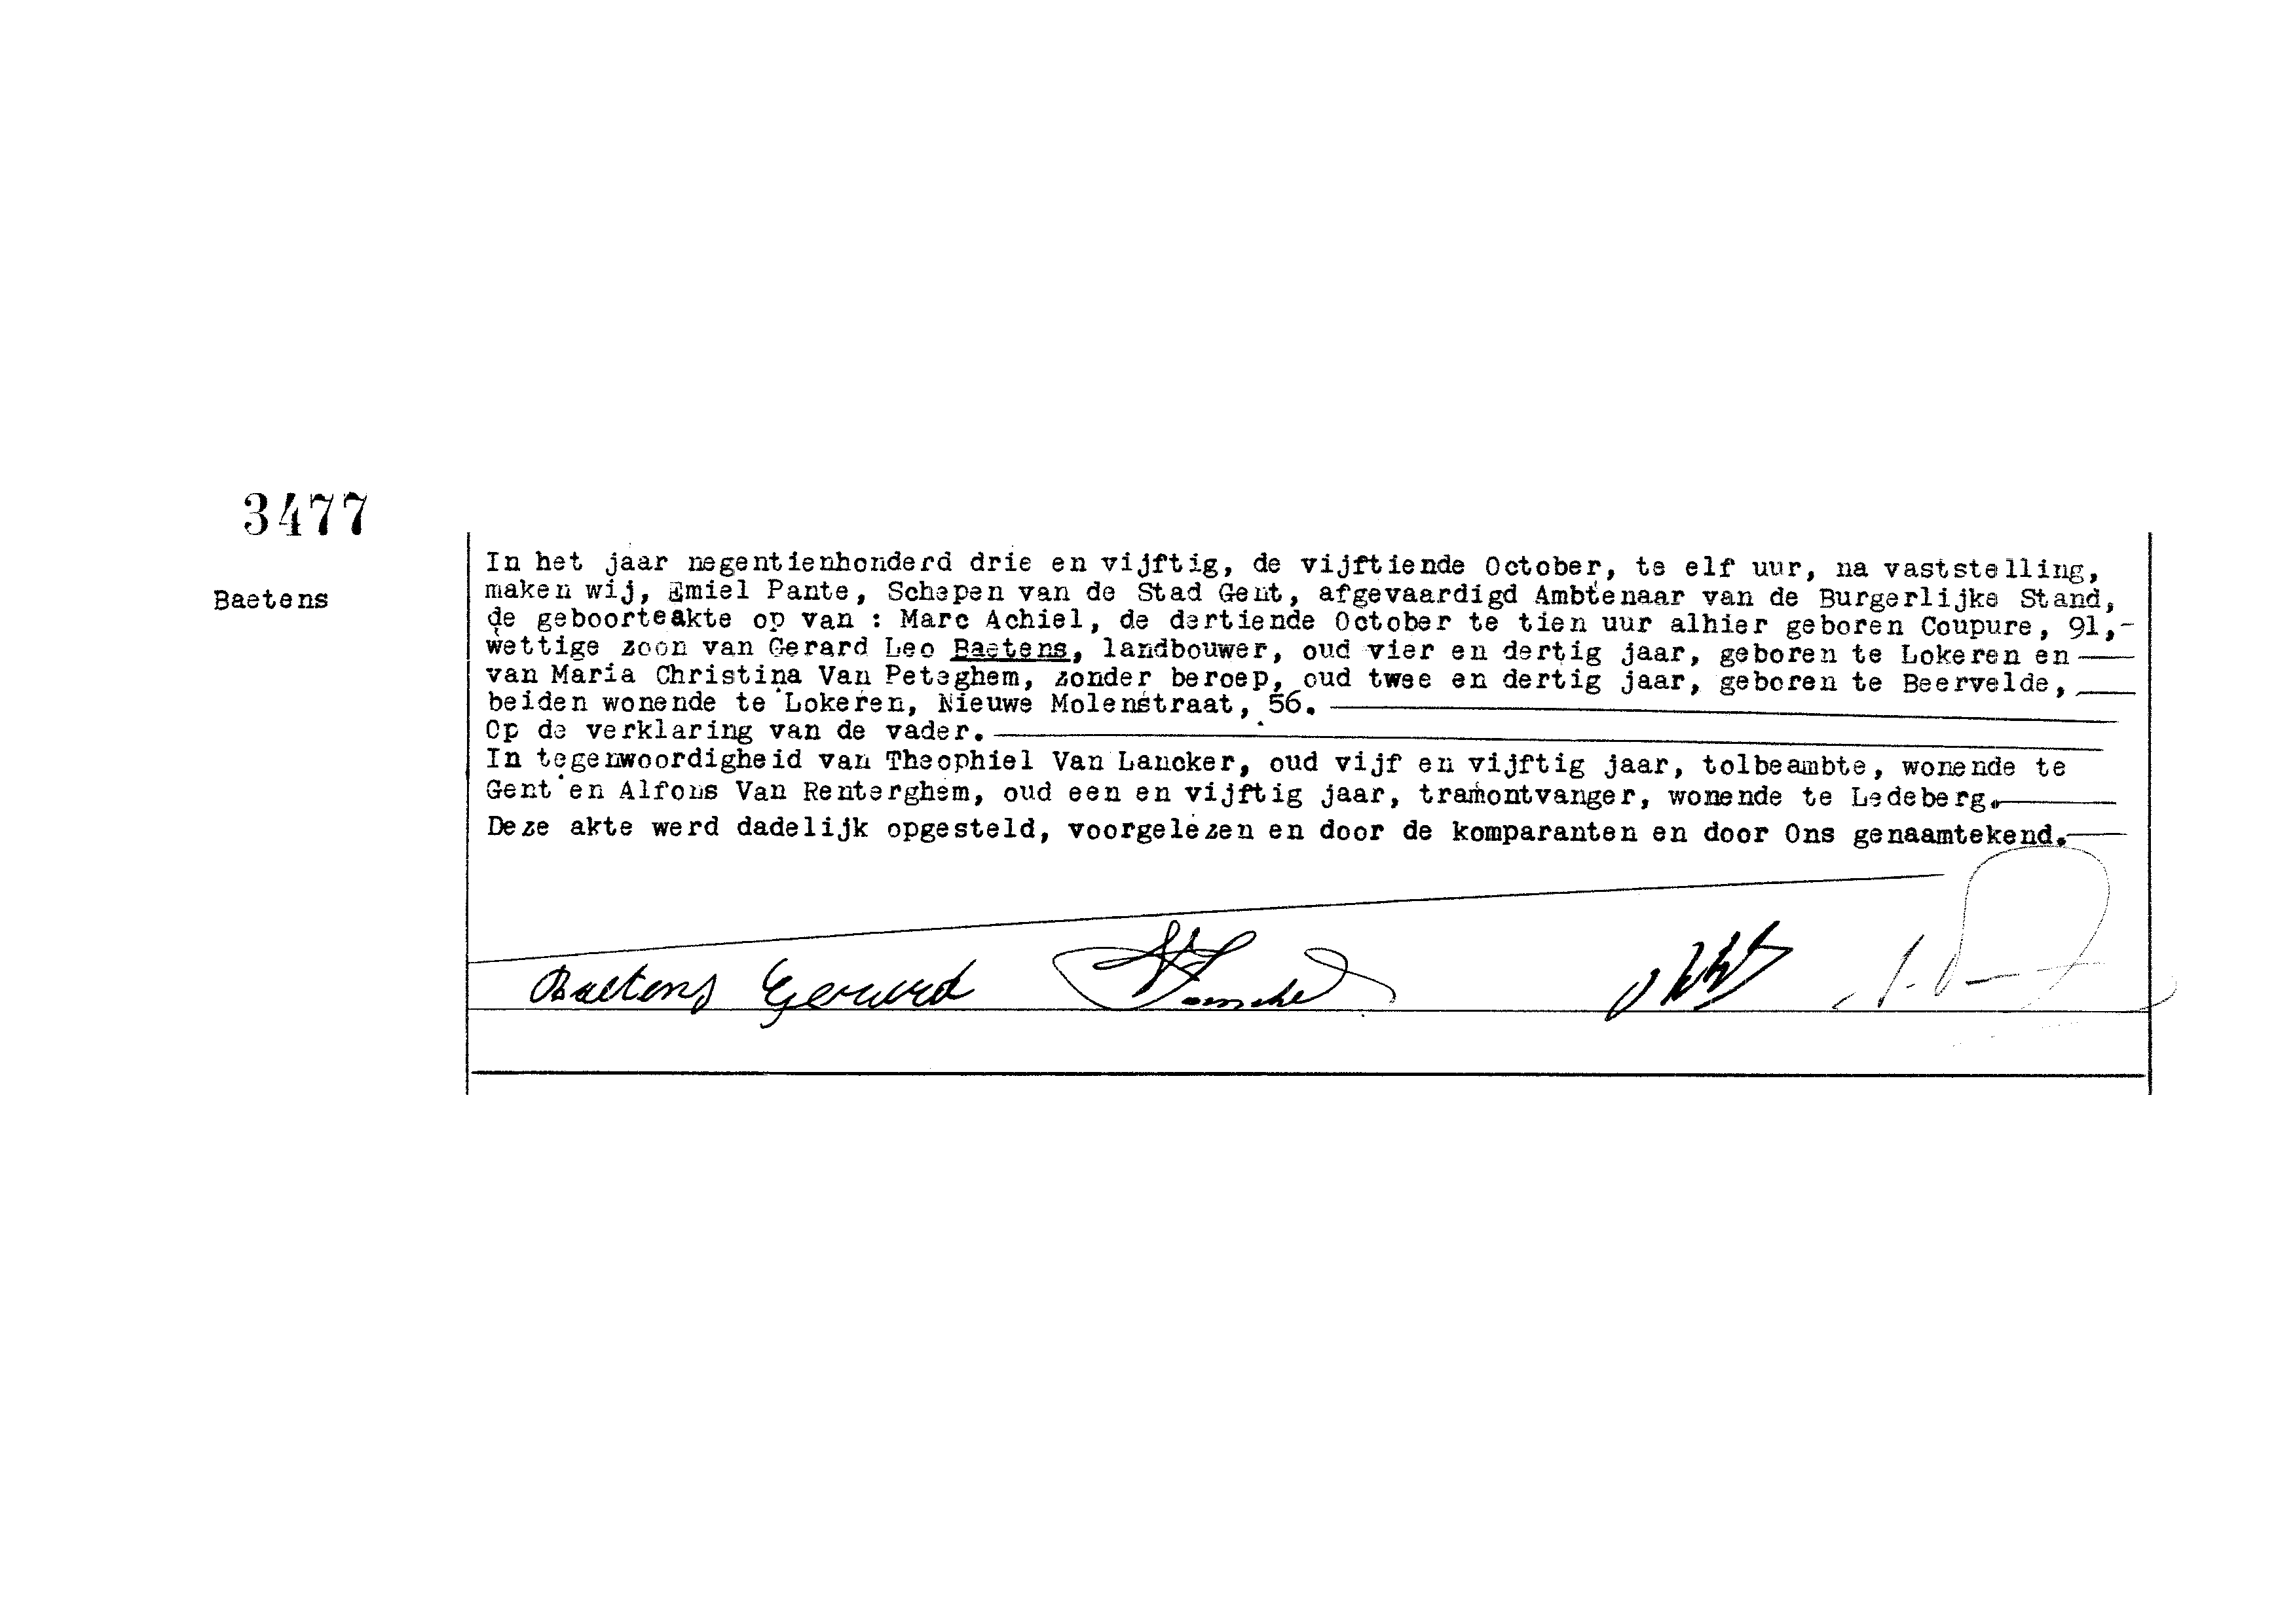 3477
Baetens
In het jaar negentienhonderd drie en vijftig, de vijftiende October, te elf uur, na vaststelling,
maken wij, Emiel Pante, Schepen van de Stad Gent, afgevaardigd Ambtenaar van de Burgerlijke Stand,
de geboorteakte op van : Marc Achiel, de dertiende October te tien uur alhier geboren Coupure, 91,-
wettige zoon van Gerard Leo Baetens, landbouwer, oud vier en dertig jaar, geboren te Lokeren en
van Maria Christina Van Peteghem, zonder beroep, oud twee en dertig jaar, geboren te Beervelde,
beiden wonende te Lokeren, Nieuwe Molenstraat, 56.
Op de verklaring van de vader.
In tegenwoordigheid van Theophiel Van Lancker, oud vijf en vijftig jaar, tolbeambte, wonende te
Gent en Alfons Van Renterghem, oud een en vijftig jaar, tramontvanger, wonende te Ledeberg.
Deze akte werd dadelijk opgesteld, voorgelezen en door de komparanten en door Ons genaamtekend.
Baetens Gerard